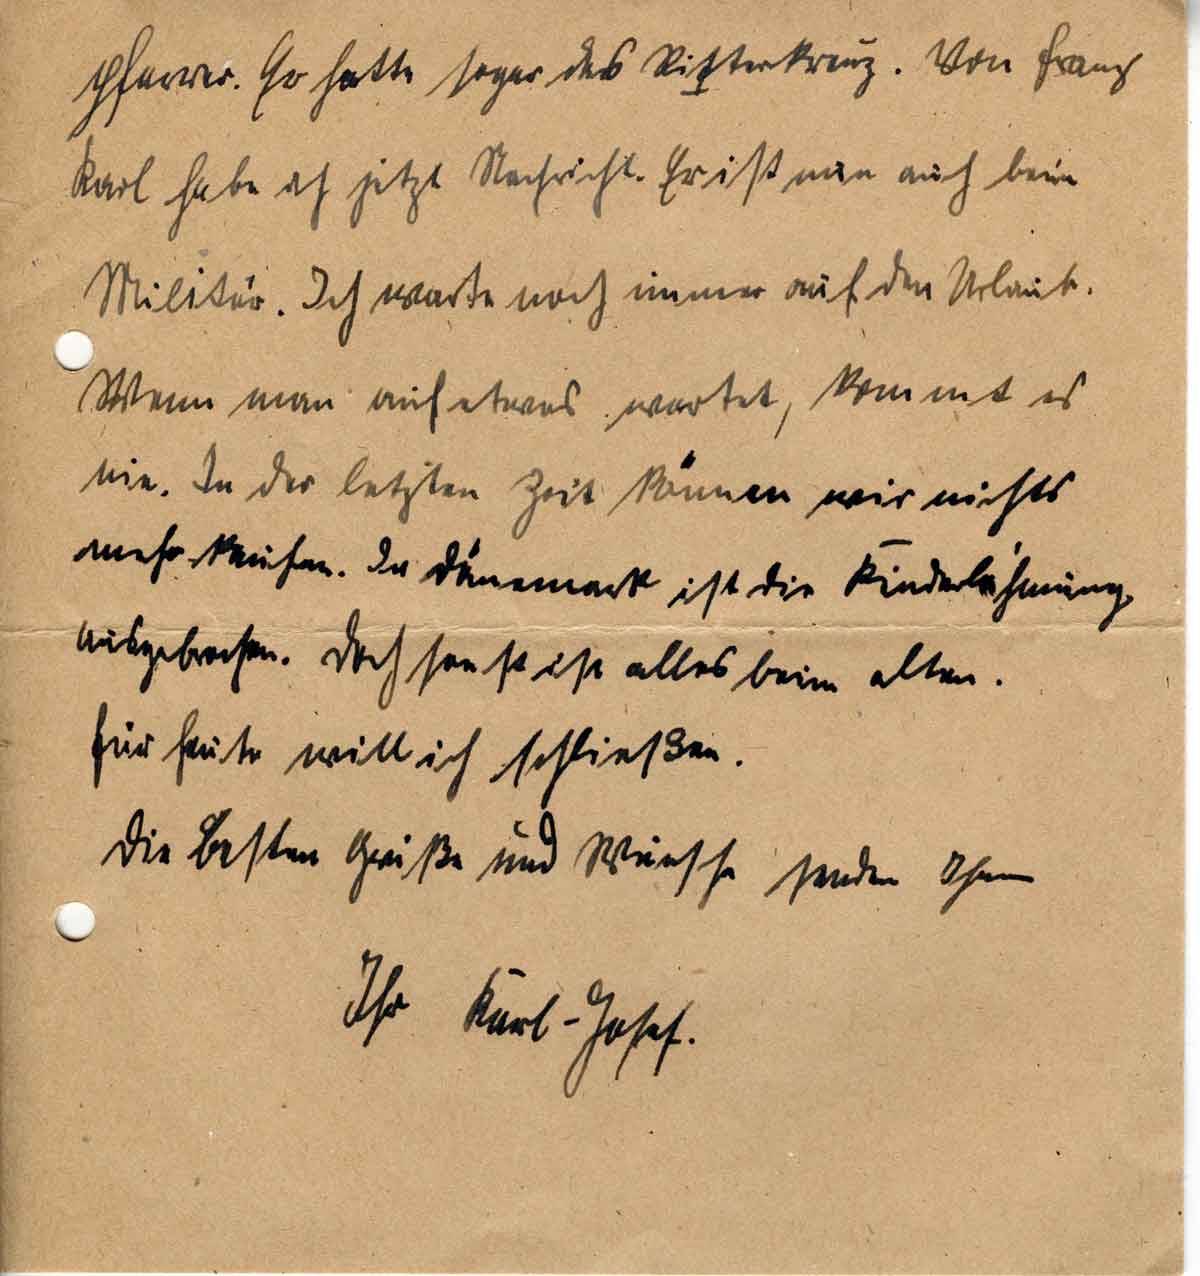 Pfarrer. Er hatte sogar das Ritterkreuz. Von Franz
Karl habe ich jetzt Nachricht. Er ist nun auch beim
Militär. Ich warte noch immer auf den Urlaub.
Wenn man auf etwas wartet, kommt es
nie. In der letzten Zeit können wir nichts
mehr kaufen. In Dänemark ist die Kinderlähmung
ausgebrochen. Doch sonst ist alles beim alten.
Für heute will ich schließen.
Die besten Grüße und Wünsche senden Ihnen
Ihr Karl-Josef.